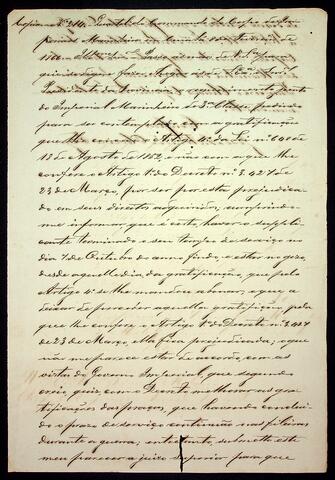 Copia = Nº 214. Quartel do Commando do Corpo de Im-
perial Marinheiro em Cuiabá de de
186 Illmo Exmo Snr. Passo às mãos de V. Exa para
que se digne fazer chegar às de S. Exa o Snr.
Presidente da Provincia o requerimento junto
do Imperial Marinheiro de 3ª Classe pedindo
para ser contemplado com a gratificação
que lhe concede o Artigo da Lei nº 648 de
18 de Agosto de 1852, e não com a que lhe
confere o Artigo 1º do Decreto nº 3.427 de
23 de Março, por ser por esta prejudica-
do em seus direitos adquiridos, cumprindo-
me informar, que é certo, haver o suppli-
cante terminado o seu tempo de serviço no
dia 7 de Outubro do anno findo, e estar no gozo,
desde aquelle dia, da gratificação, que pelo
Artigo 4º se lhe mandou abonar, e que a
deixar de perceber aquella gratificação, pela
que lhe confere o Artigo 1º do Decreto nº 3.427
de 23 de Março, elle fica prejudicado; o que
não me parece estar de accordo, com as
vistas do Governo Imperial, que segundo
creio, quiz com o Decreto melhorar as gra-
tificações das praças, que havendo conclui-
do o prazo de serviço continuão nas fileiras
durante a guerra; entretanto, submetto este
meu parecer a juizo superior para que